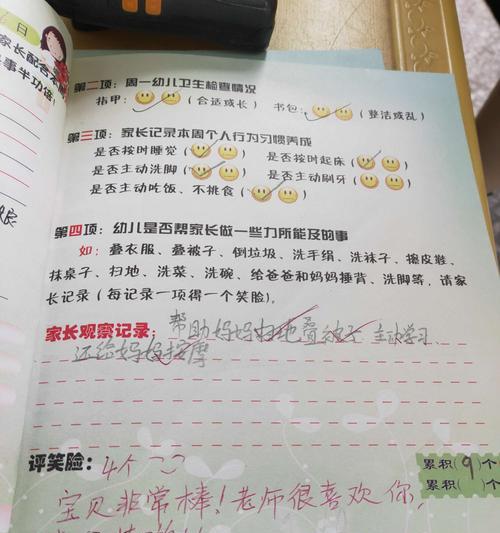 日
家长配合
事半功倍
第二项：周一幼儿卫生检查情况
指甲：（合适或长） 书包：（整洁或乱）
第三项：家长记录本周个人行为习惯养成
是否按时睡觉（ ） 是否按时起床（ ）
是否主动洗脚（ ） 是否主动刷牙（ ）
是否主动吃饭、不挑食（ ）
第四项：幼儿是否帮家长做一些力所能及的事
如：叠衣服、叠被子、倒垃圾、洗手绢、洗袜子、擦皮鞋、
抹桌子、扫地、洗菜、洗碗、给爸爸和妈妈捶背、洗脚等，请家
长记录（每记录一项得一个笑脸）。
家长观察记录：帮助妈妈扫地叠被子 主动学习
还给妈妈按摩
评笑脸：4个
累积（9）个
累积（ ）个
宝贝非常棒！老师很喜欢你，